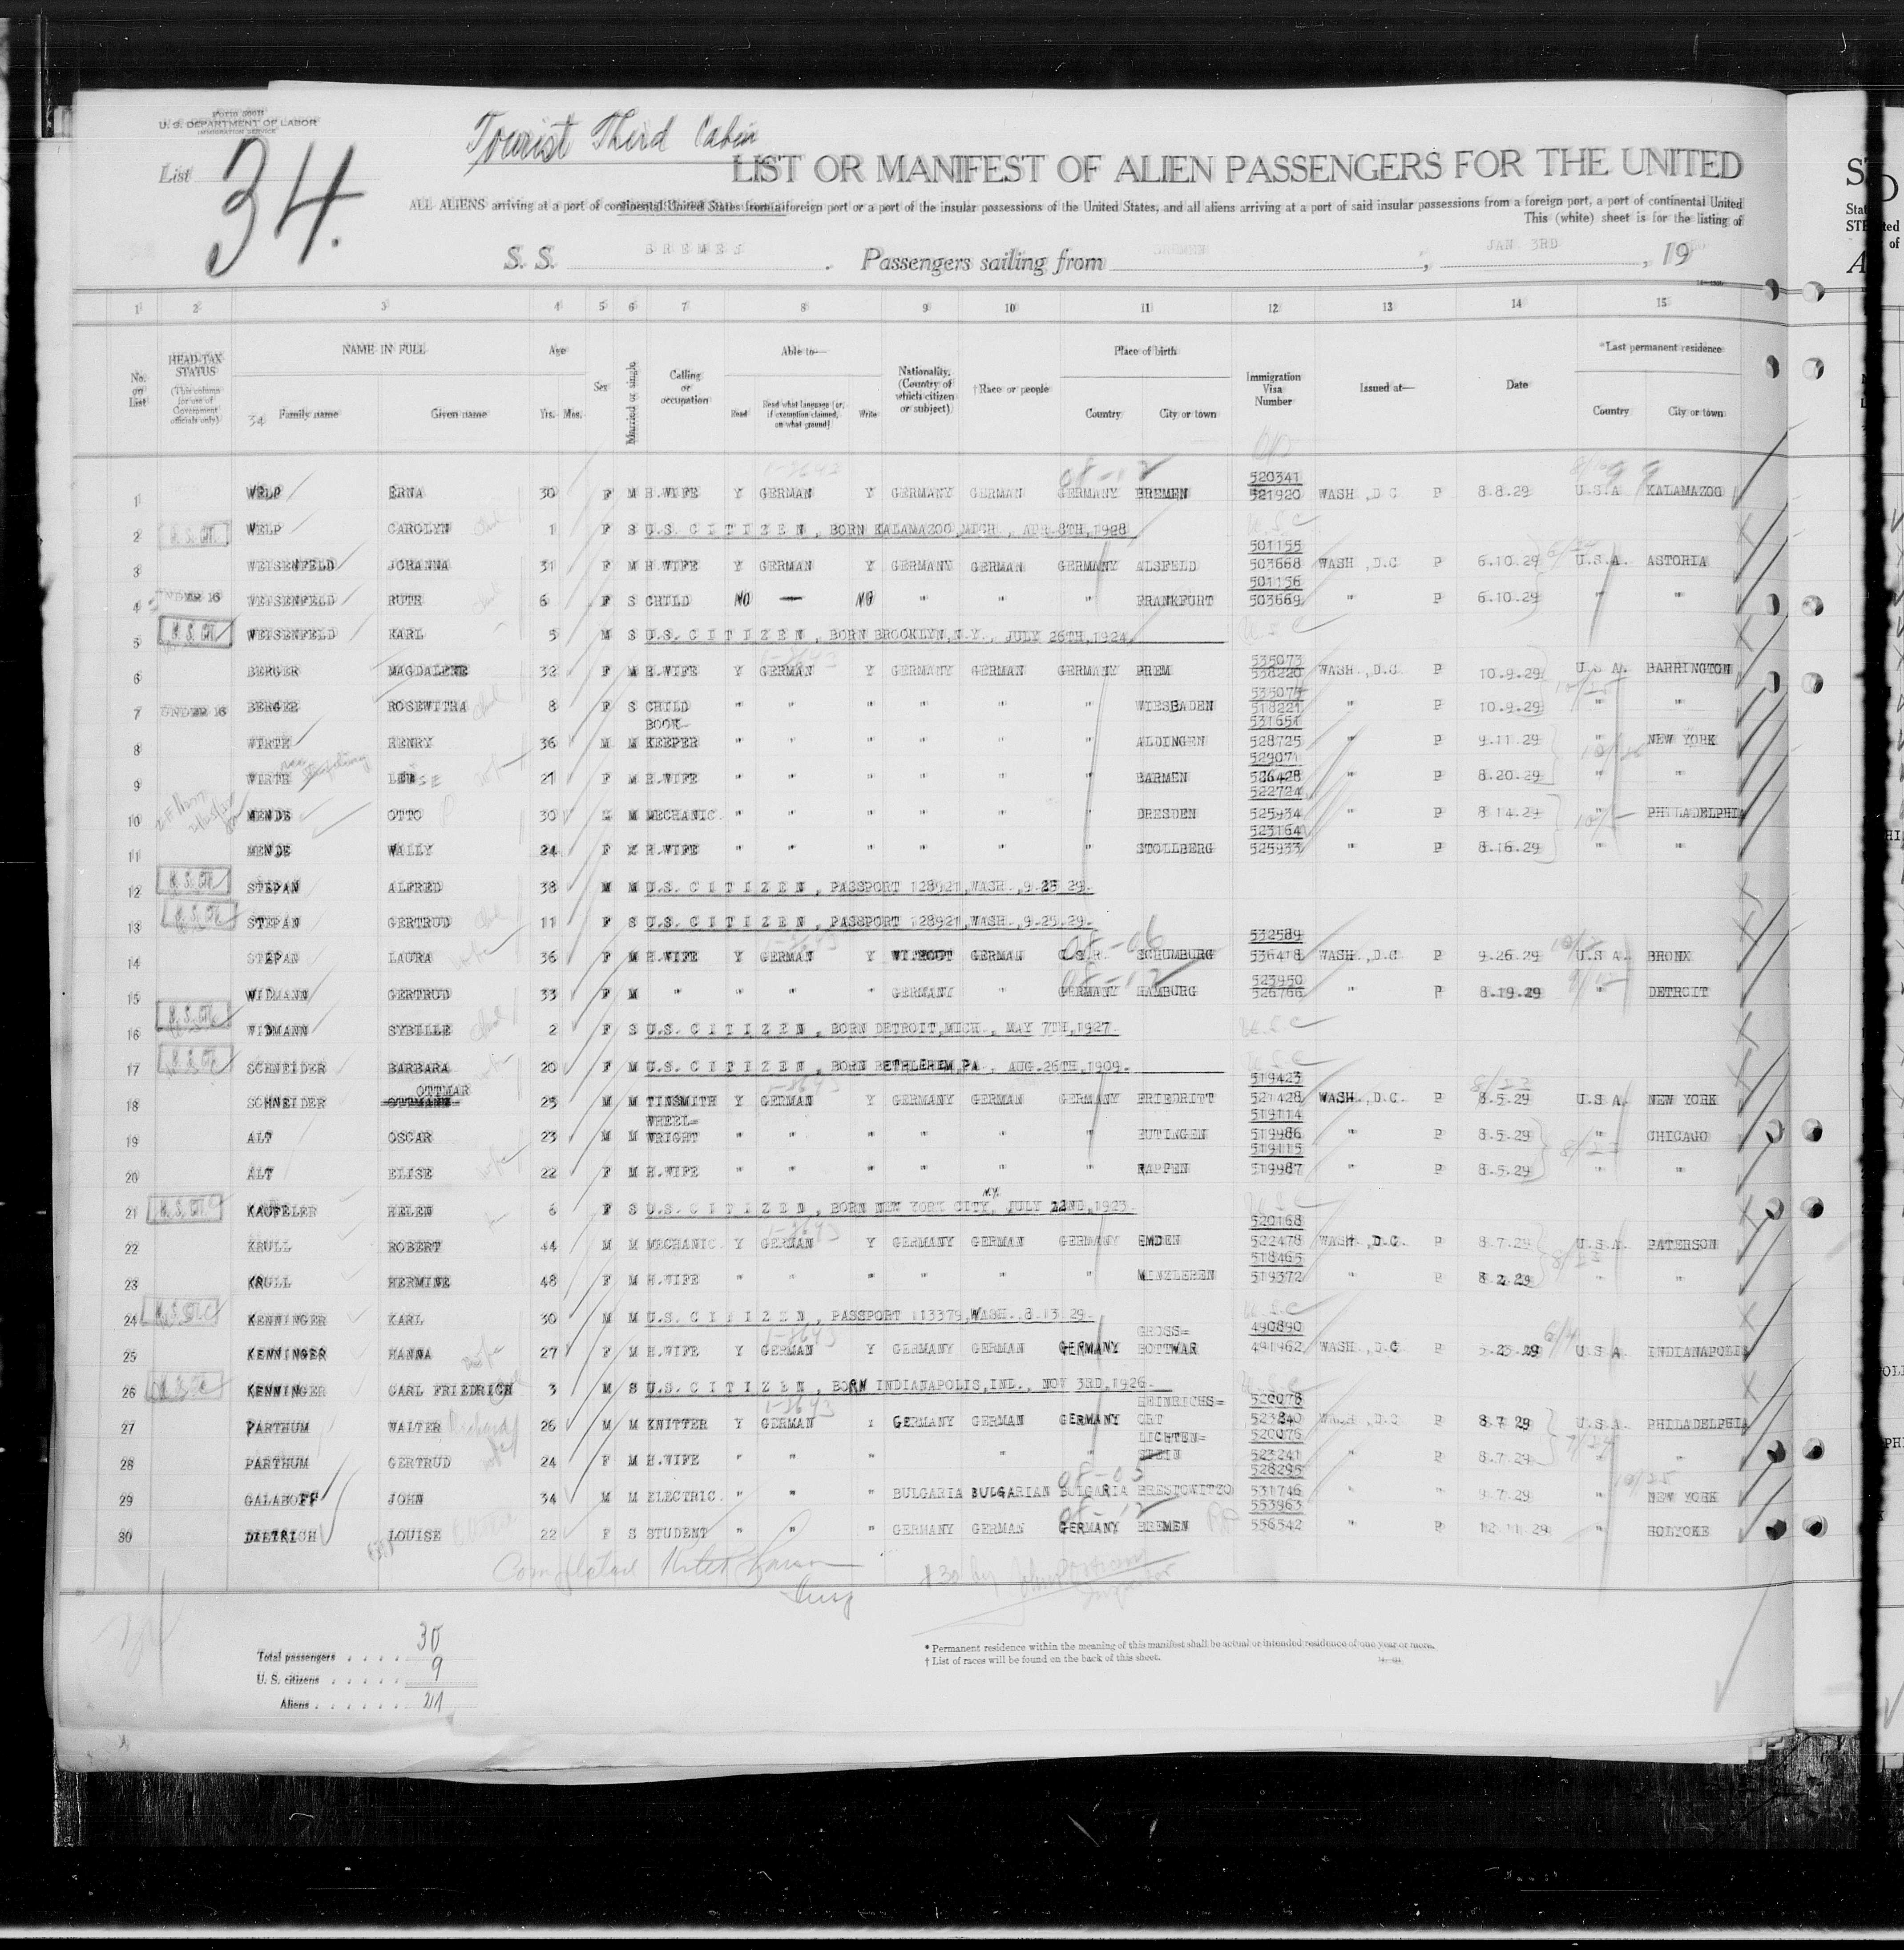 Form 500B
U. S. DEPARTMENT OF LABOR
IMMIGRATION SERVICE
List 34.
Tourist Third Cabin
LIST OR MANIFEST OF ALIEN PASSENGERS FOR THE UNITED
ALL ALIENS arriving at a port of continental United States from a foreign port or a port of the insular possessions of the United States, and all aliens arriving at a port of said insular possessions from a foreign port, a port of continental United
This (white) sheet is for the listing of
S. S. BREMEN . Passengers sailing from BREMEN , JAN 3RD , 19
1 2 3 4 5 6 7 8 9 10 11 12 13 14 15
No. on List HEAD-TAX STATUS (This column for use of Government officials only) NAME IN FULL Family name Given name Age Yrs. Mos. Sex Married or single Calling or occupation Able to— Read Read what language [or, if exemption claimed, on what ground] Write Nationality. (Country of which citizen or subject) †Race or people Place of birth Country City or town Immigration Visa Number Issued at— Date *Last permanent residence Country City or town
34
1 WELP ERNA 30 F M H.WIFE Y GERMAN Y GERMANY GERMAN GERMANY BREMEN 520341 521920 WASH.,D.C. P 8.8.29 U.S.A. KALAMAZOO
2 WELP CAROLYN 1 F S U.S. CITIZEN, BORN KALAMAZOO,MICH., APR.8TH,1928
3 WEISENFELD JOHANNA 31 F M H.WIFE Y GERMAN Y GERMANY GERMAN GERMANY ALSFELD 501155 503668 WASH.,D.C. P 6.10.29 U.S.A. ASTORIA
4 UNDER 16 WEISENFELD RUTH 6 F S CHILD NO — NO " " " FRANKFURT 501156 503669 " P 6.10.29 " "
5 WEISENFELD KARL 5 M S U.S. CITIZEN, BORN BROOKLYN,N.Y., JULY 26TH,1924
6 BERGER MAGDALENE 32 F M H.WIFE Y GERMAN Y GERMANY GERMAN GERMANY PREM 535073 538220 WASH.,D.C. P 10.9.29 U.S.A. BARRINGTON
7 UNDER 16 BERGER ROSEWITHA 8 F S CHILD " " " " " " WIESBADEN 535074 518221 " P 10.9.29 " "
8 WIRTH HENRY 36 M M BOOK-KEEPER " " " " " " ALDINGEN 531651 528725 " P 9.11.29 " NEW YORK
9 WIRTH LUISE 21 F M H.WIFE " " " " " " BARMEN 529071 526428 " P 8.20.29 " "
10 MENDE OTTO 30 M M MECHANIC. " " " " " " DRESDEN 522724 525934 " P 8.14.29 " PHILADELPHIA
11 MENDE WALLY 24 F M H.WIFE " " " " " " STOLLBERG 523164 525933 " P 8.16.29 " "
12 STEPAN ALFRED 38 M M U.S. CITIZEN, PASSPORT 128921,WASH.,9.25 29.
13 STEPAN GERTRUD 11 F S U.S. CITIZEN, PASSPORT 128921,WASH.,9.25.29.
14 STEPAN LAURA 36 F M H.WIFE Y GERMAN Y WITHOUT GERMAN C.S.R. SCHUMBURG 532589 536418 WASH.,D.C. P 9.26.29 U.S.A. BRONX
15 WIDMANN GERTRUD 33 F M " " " " GERMANY " GERMANY HAMBURG 523950 526766 " P 8.19.29 " DETROIT
16 WIDMANN SYBILLE 2 F S U.S. CITIZEN, BORN DETROIT,MICH., MAY 7TH,1927.
17 SCHNEIDER BARBARA 20 F M U.S. CITIZEN, BORN BETHLEHEM,PA., AUG.26TH,1909.
18 SCHNEIDER OTTMAR 25 M M TINSMITH Y GERMAN Y GERMANY GERMAN GERMANY FRIEDRITT 519423 521428 WASH.,D.C. P 8.5.29 U.S.A. NEW YORK
19 ALT OSCAR 23 M M WHEEL=WRIGHT " " " " " " EUTINGEN 519114 519986 " P 8.5.29 " CHICAGO
20 ALT ELISE 22 F M H.WIFE " " " " " " RAPPEN 519115 519987 " P 8.5.29 " "
21 KAUFELER HELEN 6 F S U.S. CITIZEN, BORN NEW YORK CITY, N.Y. JULY 22ND,1923.
22 KRULL ROBERT 44 M M MECHANIC. Y GERMAN Y GERMANY GERMAN GERMANY EMDEN 520168 522478 WASH.,D.C. P 8.7.29 U.S.A. PATERSON
23 KRULL HERMINE 48 F M H.WIFE " " " " " " MINZLEBEN 518465 519372 " P 8.2.29 " "
24 KENNINGER KARL 30 M M U.S. CITIZEN, PASSPORT 113379,WASH.,8.13.29.
25 KENNINGER HANNA 27 F M H.WIFE Y GERMAN Y GERMANY GERMAN GERMANY GROSS=BOTTWAR 490890 491962 WASH.,D.C. P 5.23.29 U.S.A. INDIANAPOLIS
26 KENNINGER CARL FRIEDRICH 3 M S U.S. CITIZEN, BORN INDIANAPOLIS,IND., NOV 3RD,1926.
27 PARTHUM WALTER 26 M M KNITTER Y GERMAN Y GERMANY GERMAN GERMANY HEINRICHS=ORT 520078 523240 WASH.,D.C. P 8.7.29 U.S.A. PHILADELPHIA
28 PARTHUM GERTRUD 24 F M H.WIFE " " " " " LICHTEN=STEIN 520076 523241 " P 8.7.29 " "
29 GALABOFF JOHN 34 M M ELECTRIC. " " " BULGARIA BULGARIAN BULGARIA BRESTOWITZO 528295 531746 " P 9.7.29 " NEW YORK
30 DIETRICH LOUISE 22 F S STUDENT " " " GERMANY GERMAN GERMANY BREMEN 553963 556542 " P 12.11.29 " HOLYOKE
Completed
Total passengers . . . . 30
U. S. citizens . . . . . 9
Aliens . . . . . . 21
* Permanent residence within the meaning of this manifest shall be actual or intended residence of one year or more.
† List of races will be found on the back of this sheet.